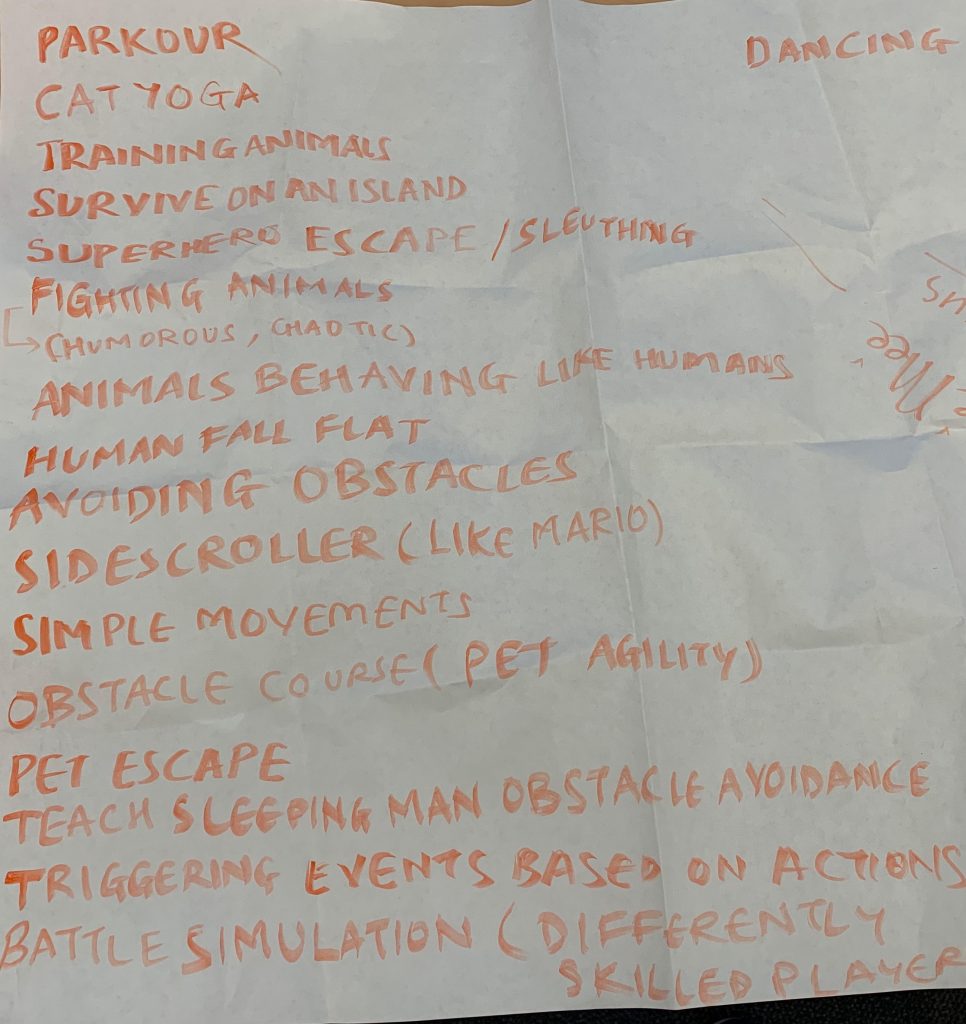 PARKOUR
DANCING
CAT YOGA
TRAINING ANIMALS
SURVIVE ON AN ISLAND
SUPERHERO ESCAPE / SLEUTHING
FIGHTING ANIMALS
(HUMOROUS, CHAOTIC)
ANIMALS BEHAVING LIKE HUMANS
HUMAN FALL FLAT
AVOIDING OBSTACLES
SIDESCROLLER (LIKE MARIO)
SIMPLE MOVEMENTS
OBSTACLE COURSE (PET AGILITY)
PET ESCAPE
TEACH SLEEPING MAN OBSTACLE AVOIDANCE
TRIGGERING EVENTS BASED ON ACTIONS
BATTLE SIMULATION (DIFFERENTLY
SKILLED PLAYER